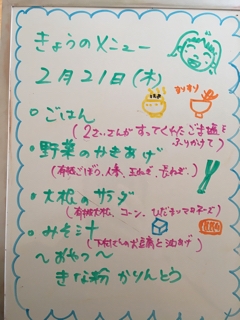 きょうのメニュー
2月21日(木)
すりすり
・ごはん
(2さいさんがすってくれたごま塩をふりかけて)
・野菜のかきあげ
(有機ごぼう、人参、玉ねぎ、長ねぎ)
・大根のサラダ
(有機大根、コーン、ひだまりマヨネーズ)
・みそ汁
(下村さんのお豆腐と油あげ)
〜おやつ〜
きな粉かりんとう